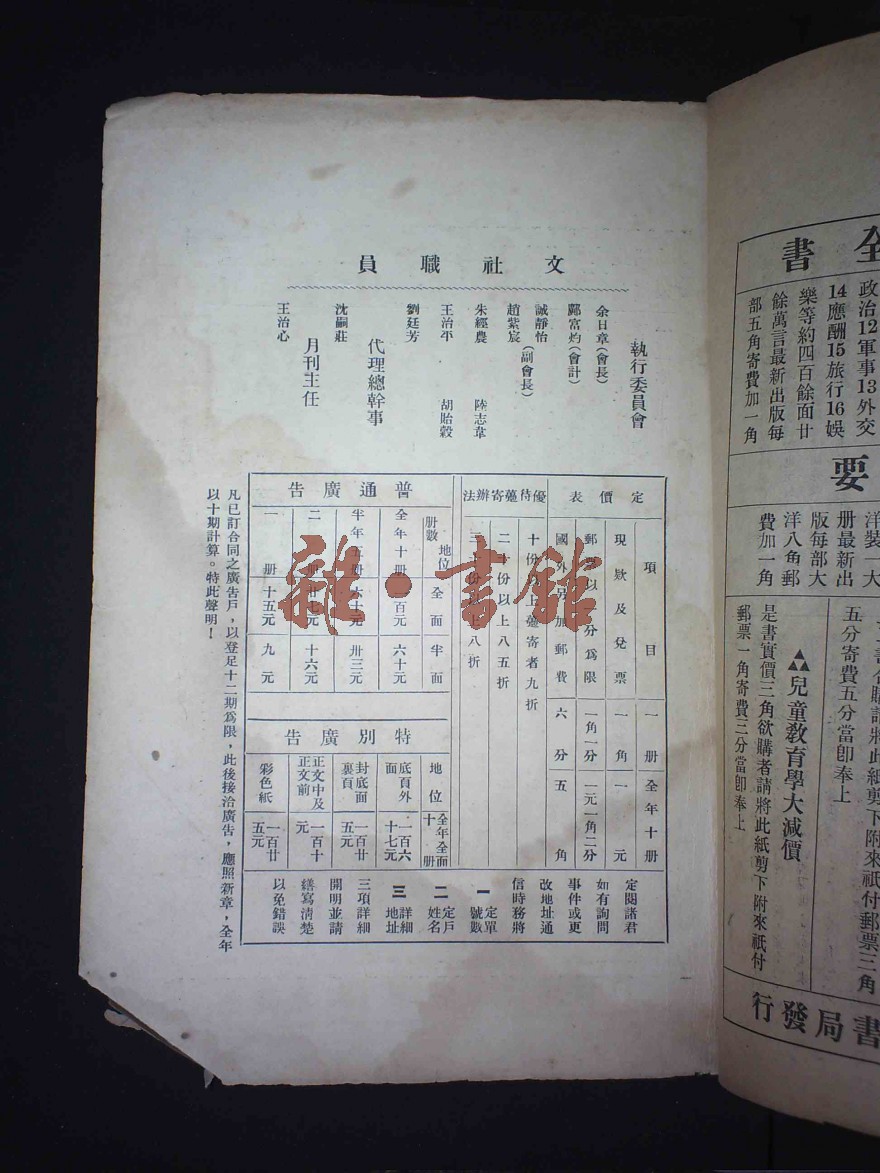 文社職員
執行委員會
余日章(會長)
鄺富灼(會計)
誠靜怡(副會長)
趙紫宸
朱經農　陸志韋
王治平　胡貽穀
劉廷芳
代理總幹事
沈嗣莊
月刊主任
王治心
定價表
項目　一册　全年十册
現欵及兌票　一角　一元
一角一分　一元一角二分
國外另加郵費　六分　五角
優待躉寄辦法
十份以上躉寄者九折
二十份以上八五折
三十份以上八折
普通廣告
册數　地位　全面　半面
全年十册　一百元　六十元
半年五册　六十元　卅三元
二册　廿七元　十六元
一册　十五元　九元
特別廣告
地位　全年全面十册
底頁外面　一百六十七元
封底面裏頁　一百廿五元
正文中及正文前　一百十元
彩色紙　一百廿五元
定閱諸君
如有詢問
事件或更
改地址通
信時務將
一定單號數
二定戶姓名
三詳細地址
三項詳細
開明並請
繕寫清楚
以免錯誤
凡已訂合同之廣告戶，以登足十二期爲限，此後接洽廣告，應照新章，全年
以十期計算。特此聲明！
雜·書館
全書
政治12軍事13外交
14應酬15旅行16娛
樂等約四百餘面廿
餘萬言最新出版每
部五角寄費加一角
要
洋裝一大
册最新出
版每部大
洋八角郵
費加一角
購請將此紙剪下附來祇付郵票三角
五分寄費五分當卽奉上
兒童敎育學大減價
是書實價三角欲購者請將此紙剪下附來祇付
郵票一角寄費三分當卽奉上
書局發行